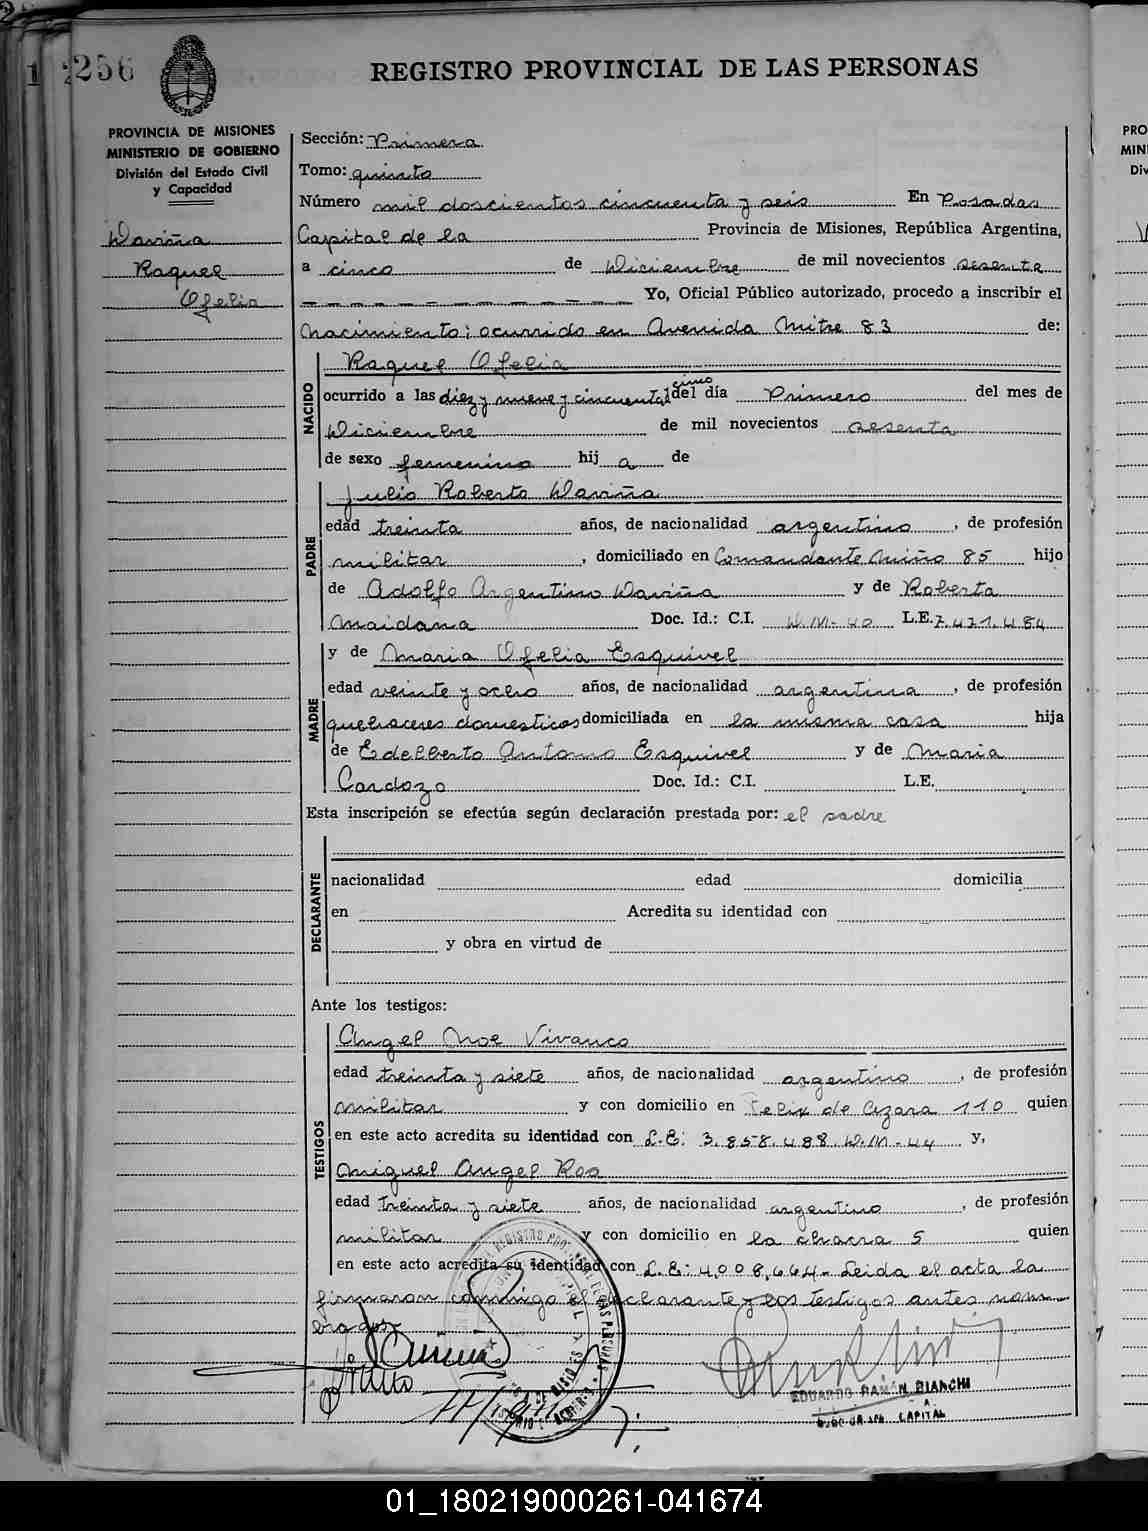 1256
REGISTRO PROVINCIAL DE LAS PERSONAS
PROVINCIA DE MISIONES
MINISTERIO DE GOBIERNO
División del Estado Civil
y Capacidad
Daviña
Raquel
Ofelia
Sección: Primera
Tomo: quinto
Número mil doscientos cincuenta y seis En Posadas
Capital de la Provincia de Misiones, República Argentina,
a cinco de Diciembre de mil novecientos sesenta
Yo, Oficial Público autorizado, procedo a inscribir el
nacimiento: ocurrido en Avenida Mitre 83 de:
NACIDO
Raquel Ofelia
ocurrido a las diez y nueve y cincuenta cinco del día Primero del mes de
Diciembre de mil novecientos sesenta
de sexo femenino hij a de
PADRE
Julio Roberto Daviña
edad treinta años, de nacionalidad argentino, de profesión
militar, domiciliado en Comandante Miño 85 hijo
de Adolfo Argentino Daviña y de Roberta
Maidana Doc. Id.: C.I. D.M-40 L.E. 7.471.484
MADRE
y de Maria Ofelia Esquivel
edad veinte y ocho años, de nacionalidad argentina, de profesión
quehaceres domesticos domiciliada en la misma casa hija
de Edelberto Antonio Esquivel y de Maria
Cardozo Doc. Id.: C.I. L.E.
Esta inscripción se efectúa según declaración prestada por: el padre
DECLARANTE
nacionalidad edad domicilia
en Acredita su identidad con
y obra en virtud de
Ante los testigos:
TESTIGOS
Angel Noe Vivanco
edad treinta y siete años, de nacionalidad argentino, de profesión
militar y con domicilio en Felix de Azara 110 quien
en este acto acredita su identidad con L.E: 3.858.488 D.M-44 y,
Miguel Angel Roa
edad treinta y siete años, de nacionalidad argentino, de profesión
militar y con domicilio en la chacra 5 quien
en este acto acredita su identidad con L.E: 4.008.664- Leida el acta la
firmaron conmigo el declarante y los testigos antes nom-
brados
EDUARDO RAMÓN BIANCHI
CAPITAL
PRO
MIN
Div
01_180219000261-041674